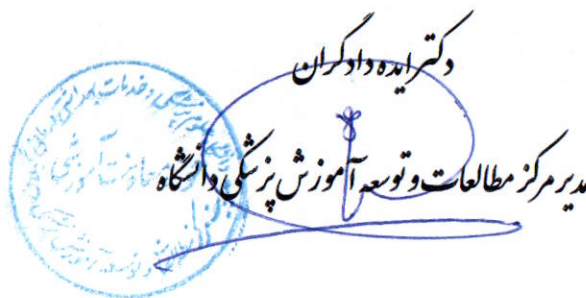 دکتر ایده دادگران
مدیر مرکز مطالعات و توسعه آموزش پزشکی دانشگاه
معاونت آموزشی